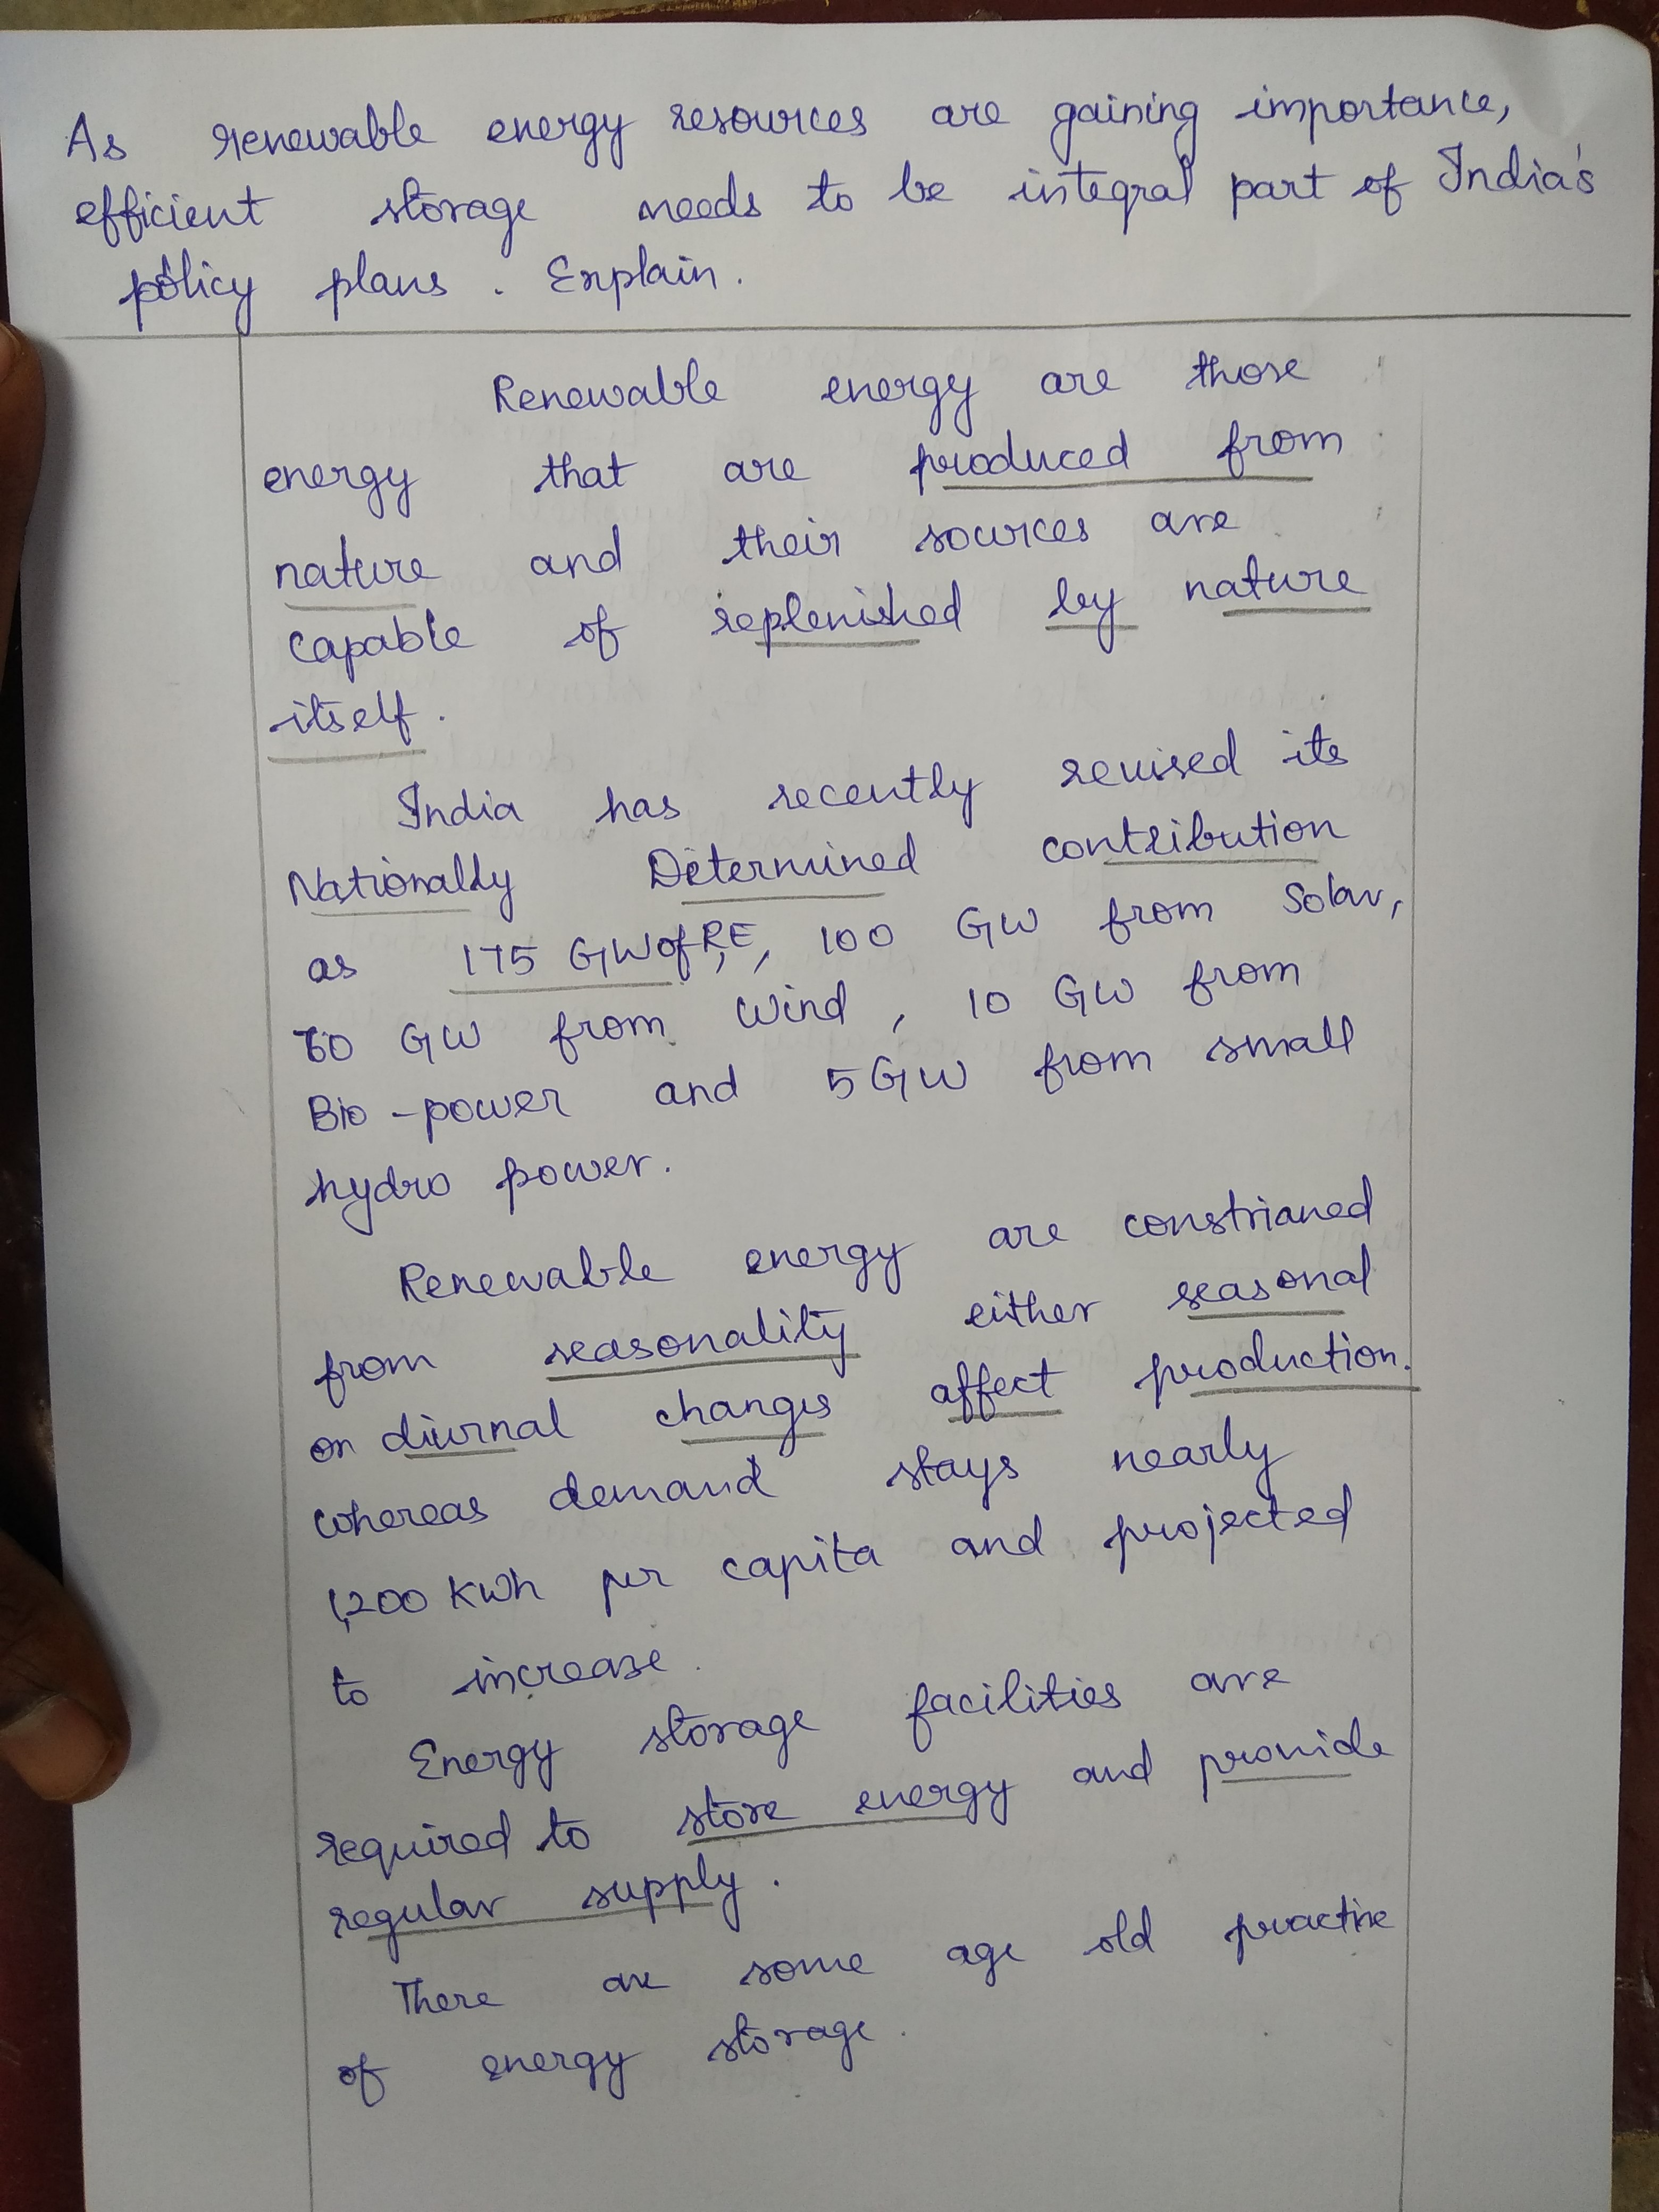 As renewable energy resources are gaining importance,
efficient storage needs to be integral part of India's
policy plans. Explain.
Renewable energy are those
energy that are produced from
nature and their sources are
capable of replenished by nature
itself.
India has recently revised its
Nationally Determined contribution
as 175 GW of RE, 100 GW from Solar,
60 GW from Wind, 10 GW from
Bio-power and 5GW from small
hydro power.
Renewable energy are constrianed
from seasonality either seasonal
or diurnal changes affect production.
whereas demand stays nearly
1,200 KWh per capita and projected
to increase.
Energy storage facilities are
required to store energy and provide
regular supply.
There are some age old practise
of energy storage.